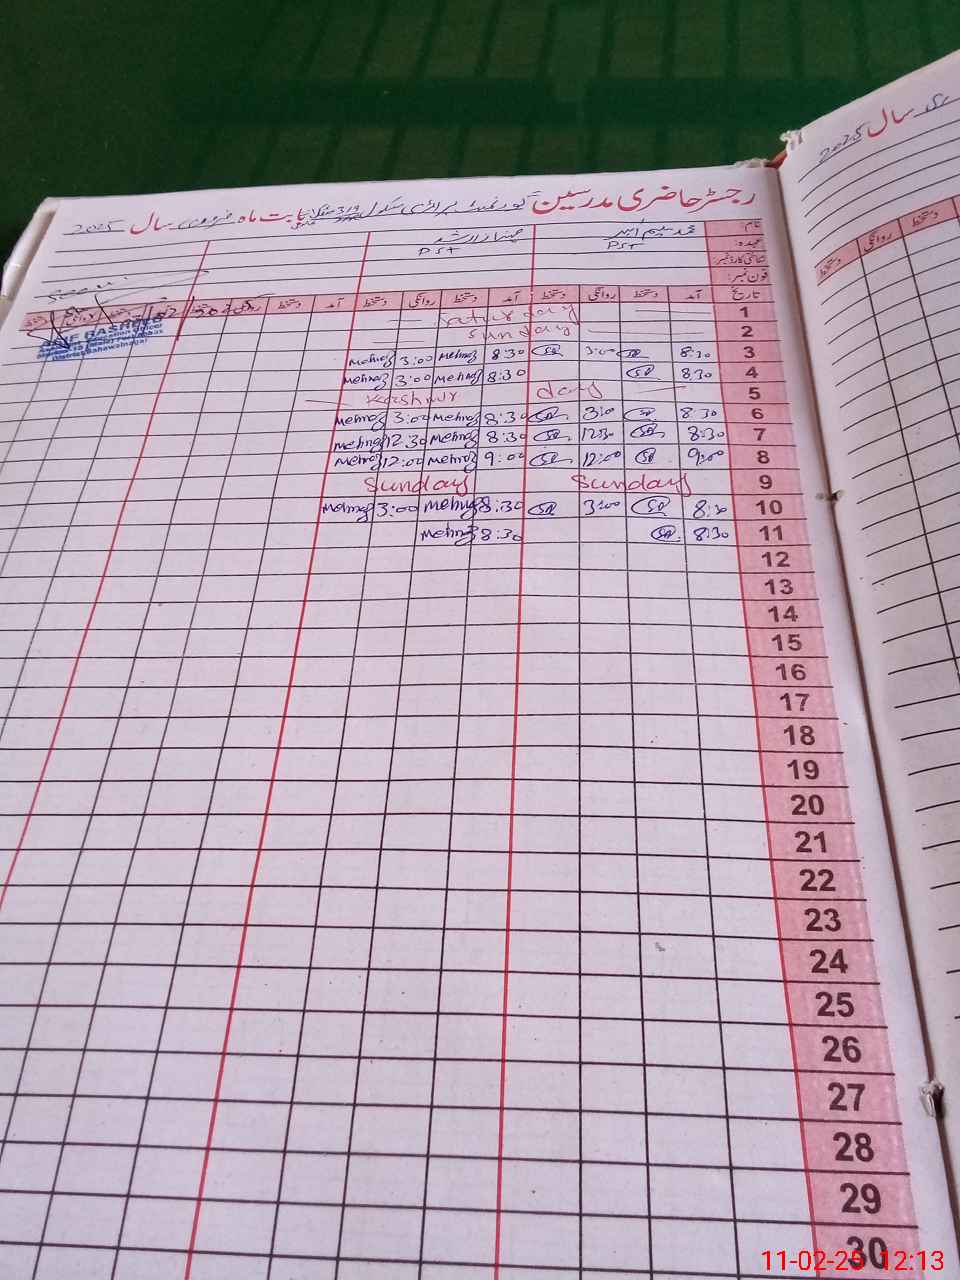 سال 2025
رجسٹر حاضری مدرسین گورنمنٹ پرائمری سکول 319 بابت ماہ فروری سال 2025
نام:
عہدہ: PST PST
شناختی کارڈ نمبر:
فون نمبر:
Seen
تاریخ آمد دستخط روانگی دستخط آمد دستخط روانگی دستخط آمد دستخط روانگی دستخط
1 Saturday
2 Sunday
3 8:30 SA 3:00 SA 8:30 Mehnaz 3:00 Mehnaz
4 8:30 SA 8:30 Mehnaz 3:00 Mehnaz
5 Kashmir day
6 8:30 SA 3:00 SA 8:30 Mehnaz 3:00 Mehnaz
7 8:30 SA 12:30 SA 8:30 Mehnaz 12:30 Mehnaz
8 9:00 SA 12:00 SA 9:00 Mehnaz 12:00 Mehnaz
9 Sunday Sunday
10 8:30 SA 3:00 SA 8:30 Mehnaz 3:00 Mehnaz
11 8:30 SA 8:30 Mehnaz
12
13
14
15
16
17
18
19
20
21
22
23
24
25
26
27
28
29
30
دستخط روانگی دستخط
11-02-25 12:13